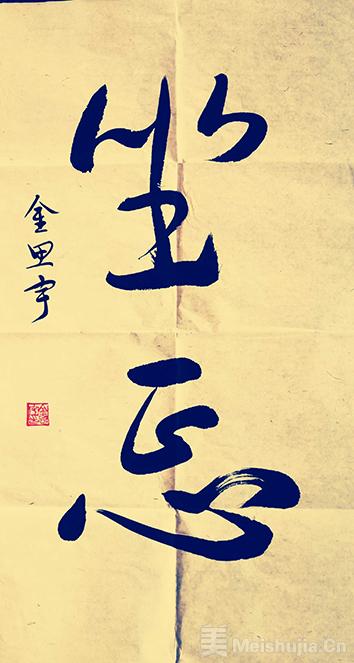 坐忘
金思宇
美 Meishujia.Cn